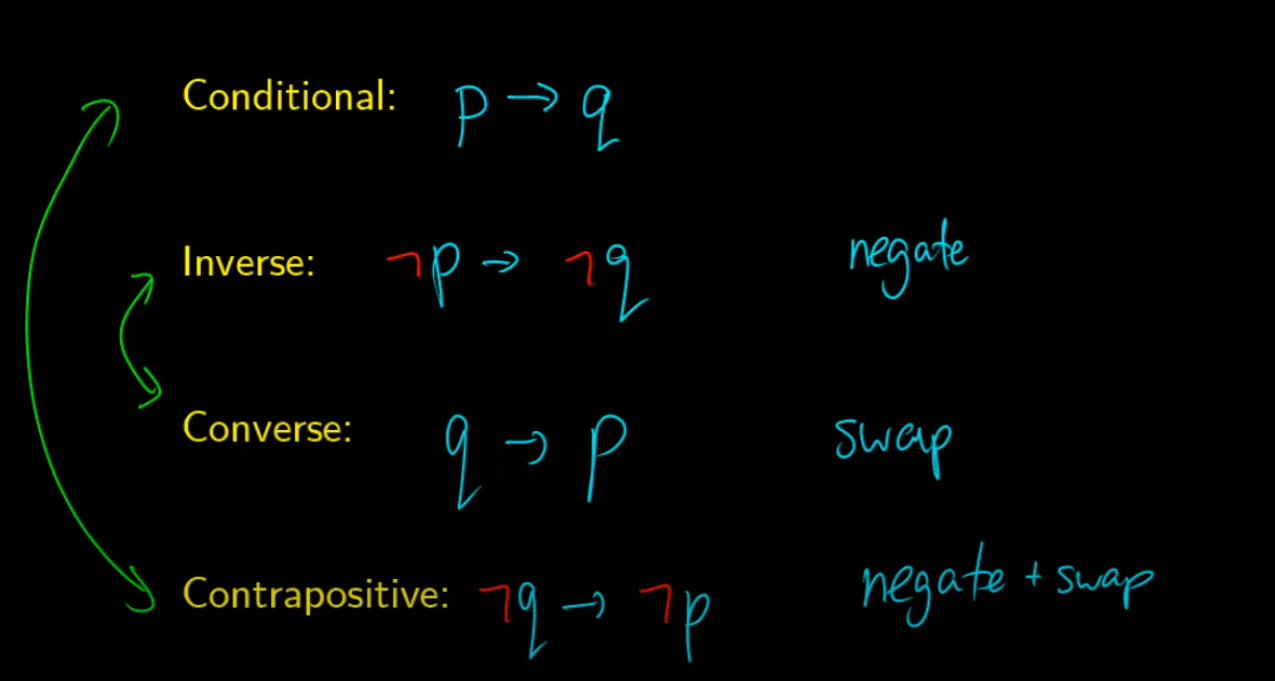 Conditional: p → q
Inverse: ¬p → ¬q negate
Converse: q → p swap
Contrapositive: ¬q → ¬p negate + swap